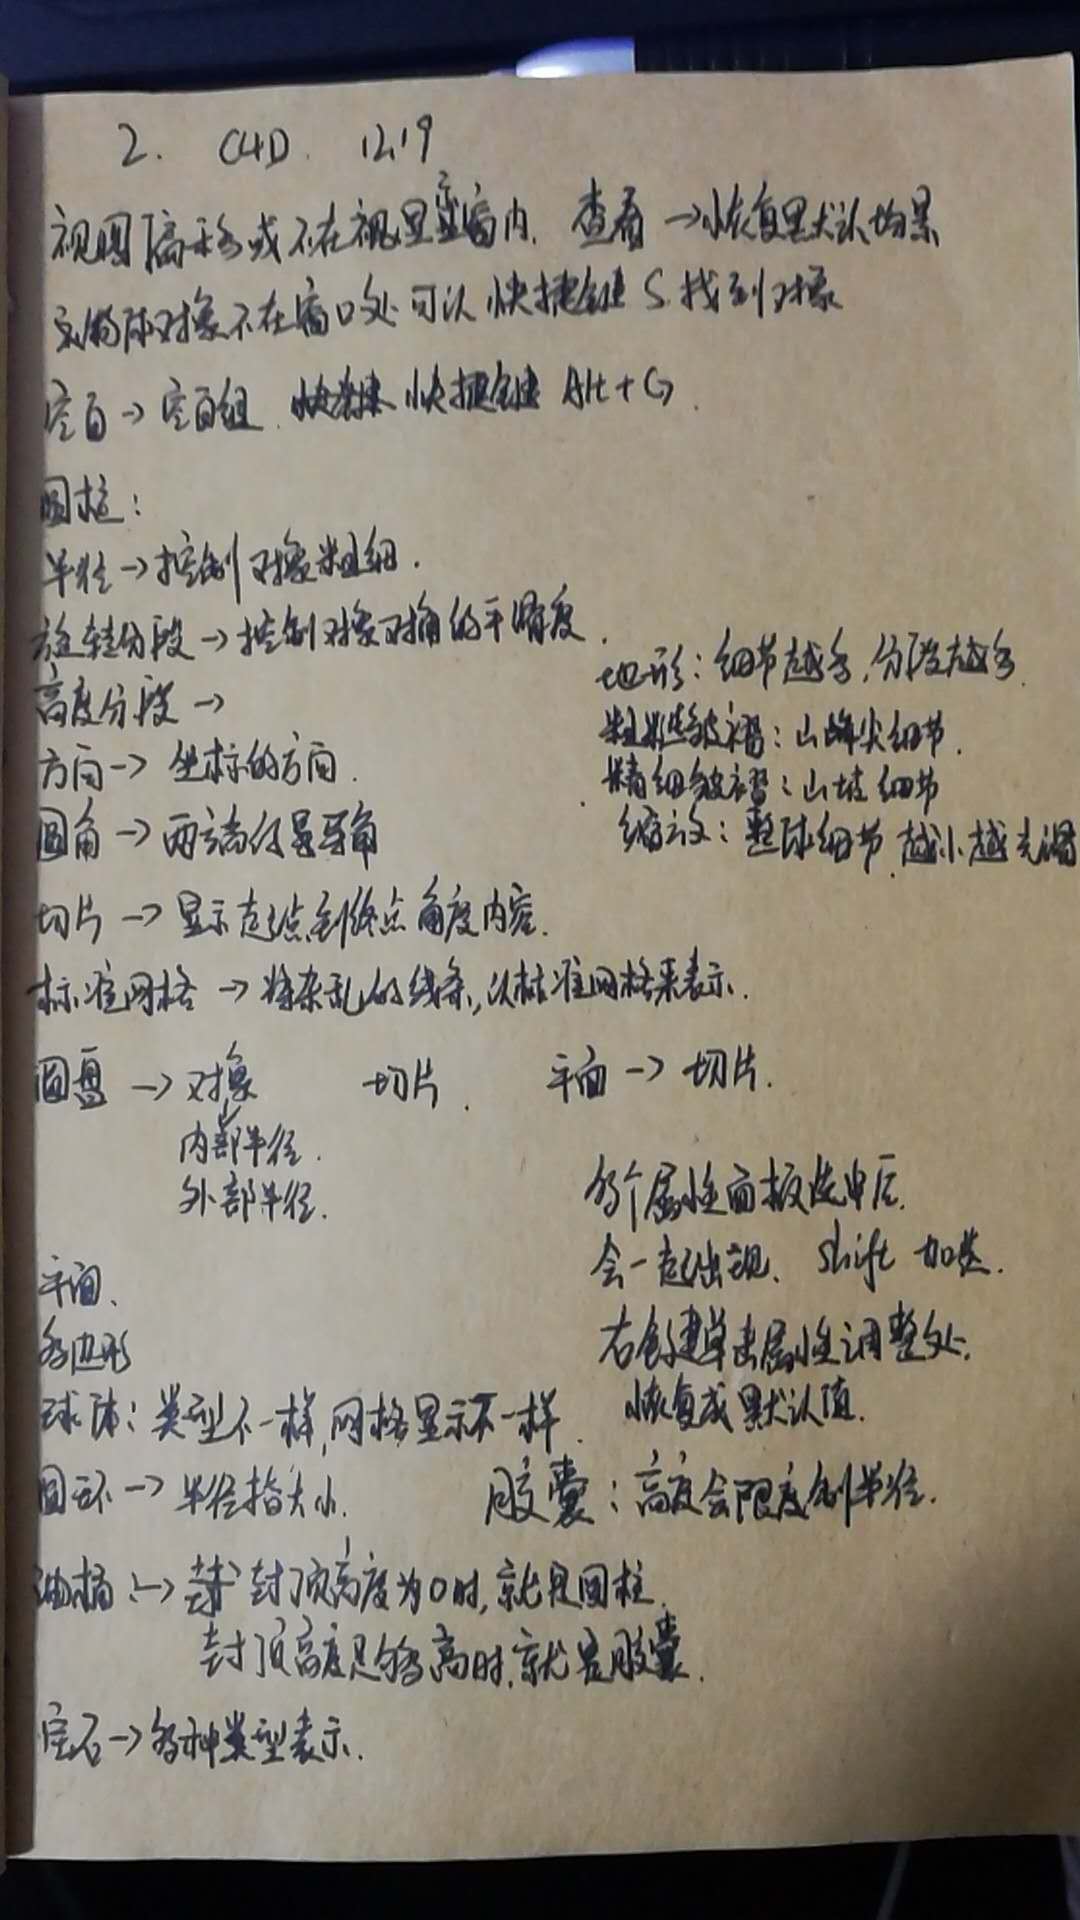 2. C4D. 12.19
视图偏移或不在视窗内. 查看→恢复默认场景
对象不在窗口处可以快捷键 S. 找到对象
空白→空白组. 快捷键 Alt+G.
圆柱:
半径→控制对象粗细.
旋转分段→控制对象对角的平滑度.
高度分段→
方向→坐标的方向.
圆角→两端
切片→显示起点到终点角度内容.
标准网格→将杂乱的线条,以标准网格来表示.
地形:细节越多,分段越多.
粗糙皱褶:山峰尖细节.
精细皱褶:山坡细节
缩放:整球细节.越小越光滑
圆盘→对象 切片.
内部半径.
外部半径.
平面→切片.
平面、
多边形
球体:类型不一样,网格显示不一样
圆环→半径指大小.
多个属性面板选中后.
会一起出现、shift 加选.
右键单击属性调整处.
恢复成默认值.
胶囊:高度会限制半径.
油桶:→封顶高度为0时,就是圆柱.
封顶高度足够高时,就是胶囊.
宝石→多种类型表示.